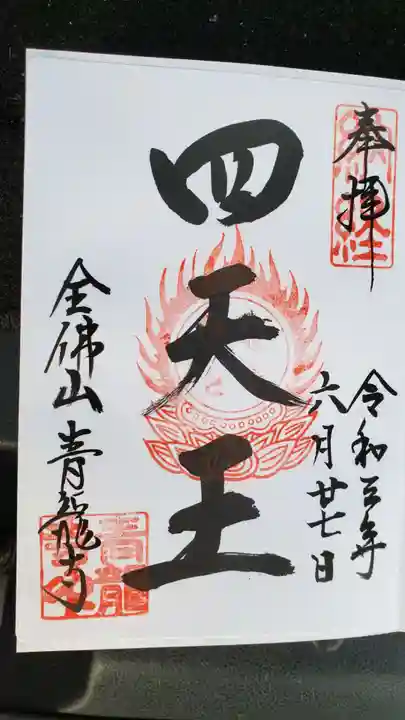 奉拝
令和三年
六月廿七日
四天王
全佛山青龍寺
青龍